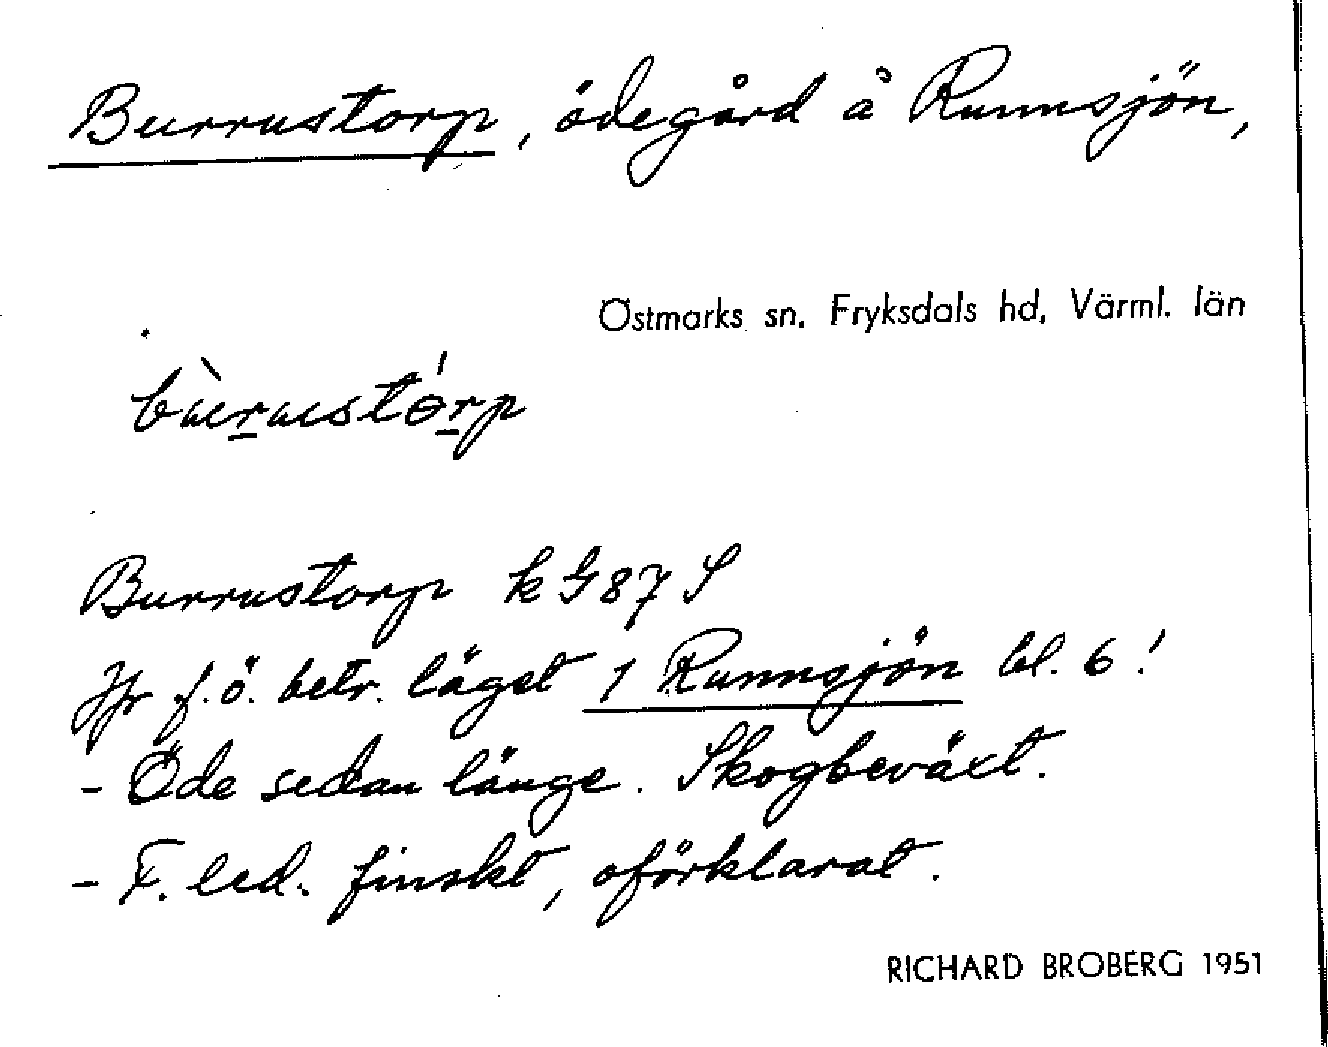 Burrustorp, ödegård å Runnsjön,
Östmarks sn. Fryksdals hd, Värml. län
bùrustórp
Burrustorp k G 87 S
Jfr f.ö. betr. läget 1 Runnsjön bl. 6!
- Öde sedan länge. Skogbeväxt.
- F. led. finskt, oförklarat.
RICHARD BROBERG 1951